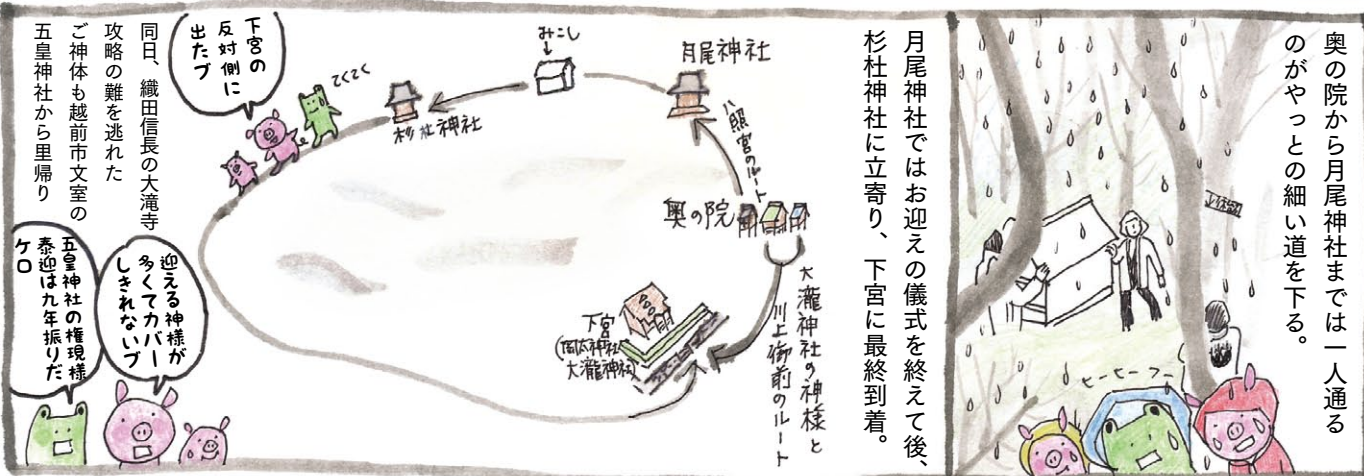 奥の院から月尾神社までは一人通る
のがやっとの細い道を下る。
ヒーヒーフー
月尾神社ではお迎えの儀式を終えて後、
杉杜神社に立寄り、下宮に最終到着。
月尾神社
みこし
八照宮のルート
奥の院
大瀧神社の神様と
川上御前のルート
下宮
(岡太神社
大瀧神社)
杉杜神社
てくてく
下宮の
反対側に
出たブ
同日、織田信長の大滝寺
攻略の難を逃れた
ご神体も越前市文室の
五皇神社から里帰り
迎える神様が
多くてカバー
しきれないブ
五皇神社の権現様
泰迎は九年振りだ
ケロ